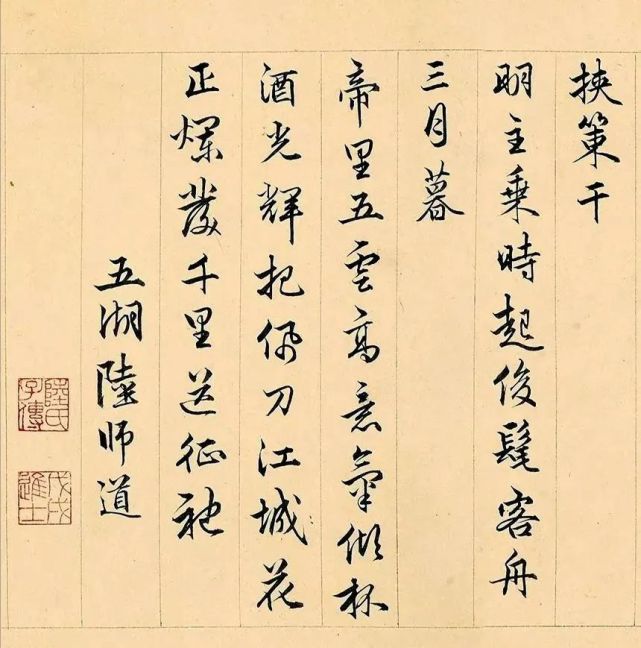 挾策干
明主乘時起俊髦客舟
三月暮
帝里五雲高意氣傾杯
酒光輝把佩刀江城花
正爛發千里送征袍
五湖陸師道
陸氏子傳
戊戌進士